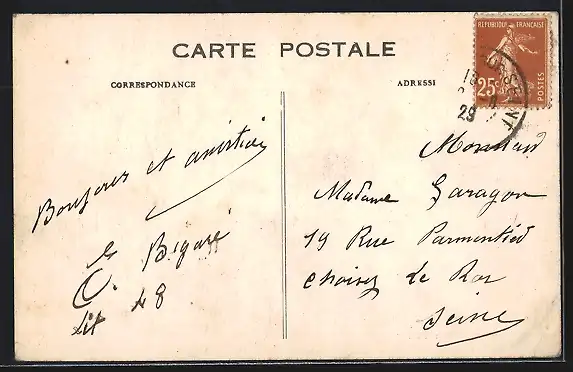 CARTE POSTALE
CORRESPONDANCE
ADRESSE
RÉPUBLIQUE FRANÇAISE
25c
POSTES
29
Bonjours et amitiés
Bigaré
Lit 48
Monsieur
Madame Garagon
19 Rue Parmentier
Choisy Le Roi
Seine